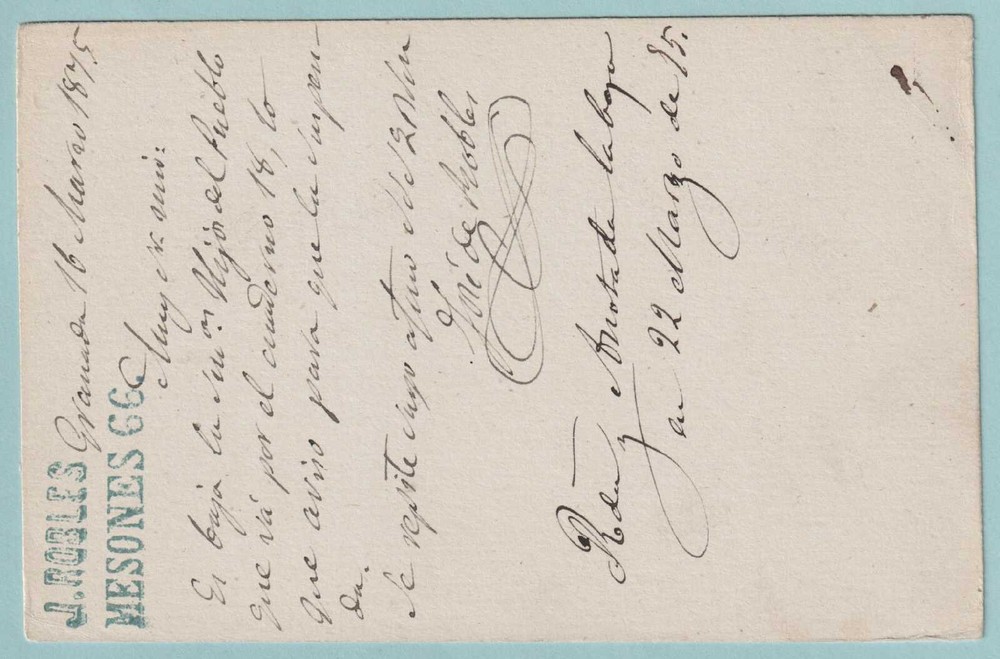 J. ROBLES
MESONES 66
Granada 16 Marzo 1875
Muy Sr mio:
Es baja la sus.on Hijos del Pueblo
que va por el cuaderno 18, lo
que aviso para que la suspen-
da.
Se repite suyo afmo
José de Robles
Rda y Anotada la baja
en 22 Marzo de 75.